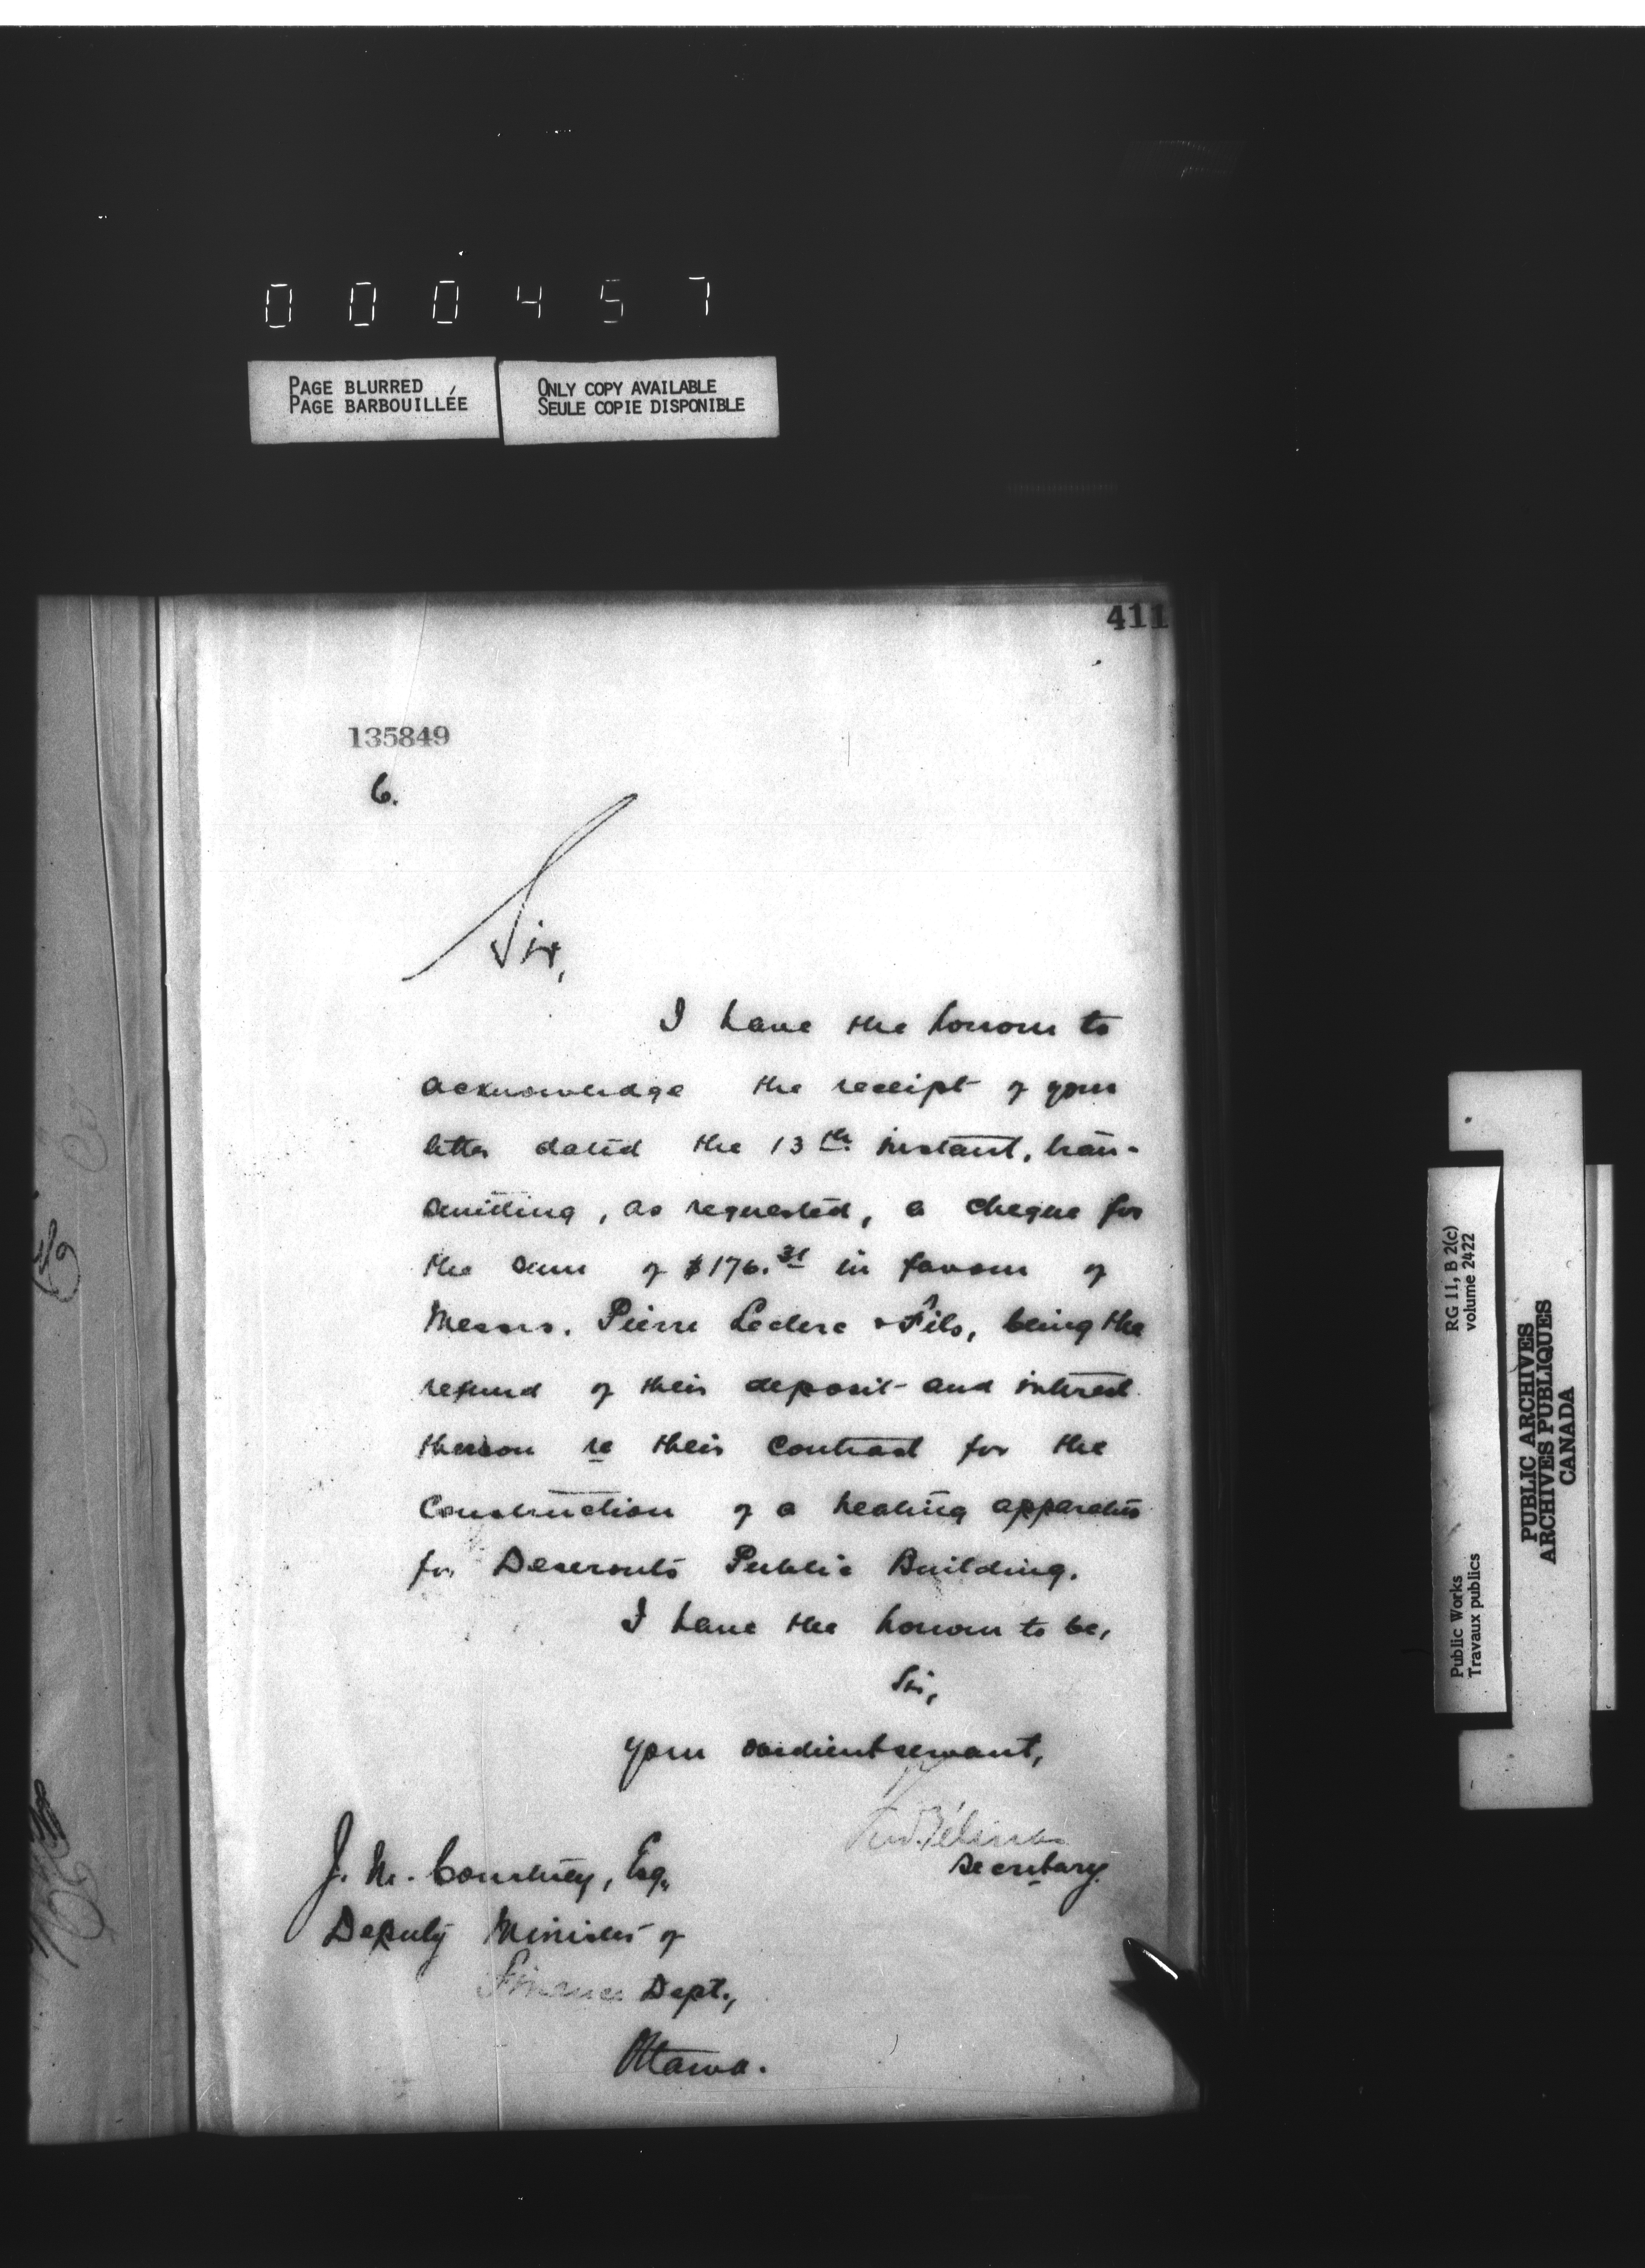 000457
PAGE BLURRED
PAGE BARBOUILLÉE
ONLY COPY AVAILABLE
SEULE COPIE DISPONIBLE
411
135849
6.
Sir,
I have the honour to
acknowledge the receipt of your
letter dated the 13th instant, tran-
smitting, as requested, a cheque for
the sum of $176.31 in favour of
Messrs. Pierre Leclerc & Fils, being the
refund of their deposit and interest
thereon re their contract for the
Construction of a heating apparatus
for Deseronto Public Building.
I have the honour to be,
Sir,
your obedient servant,
Secretary.
J. M. Courtney, Esq.,
Deputy Minister of
Finance Dept.,
Ottawa.
RG 11, B 2(c)
volume 2422
Public Works
Travaux publics
PUBLIC ARCHIVES
ARCHIVES PUBLIQUES
CANADA